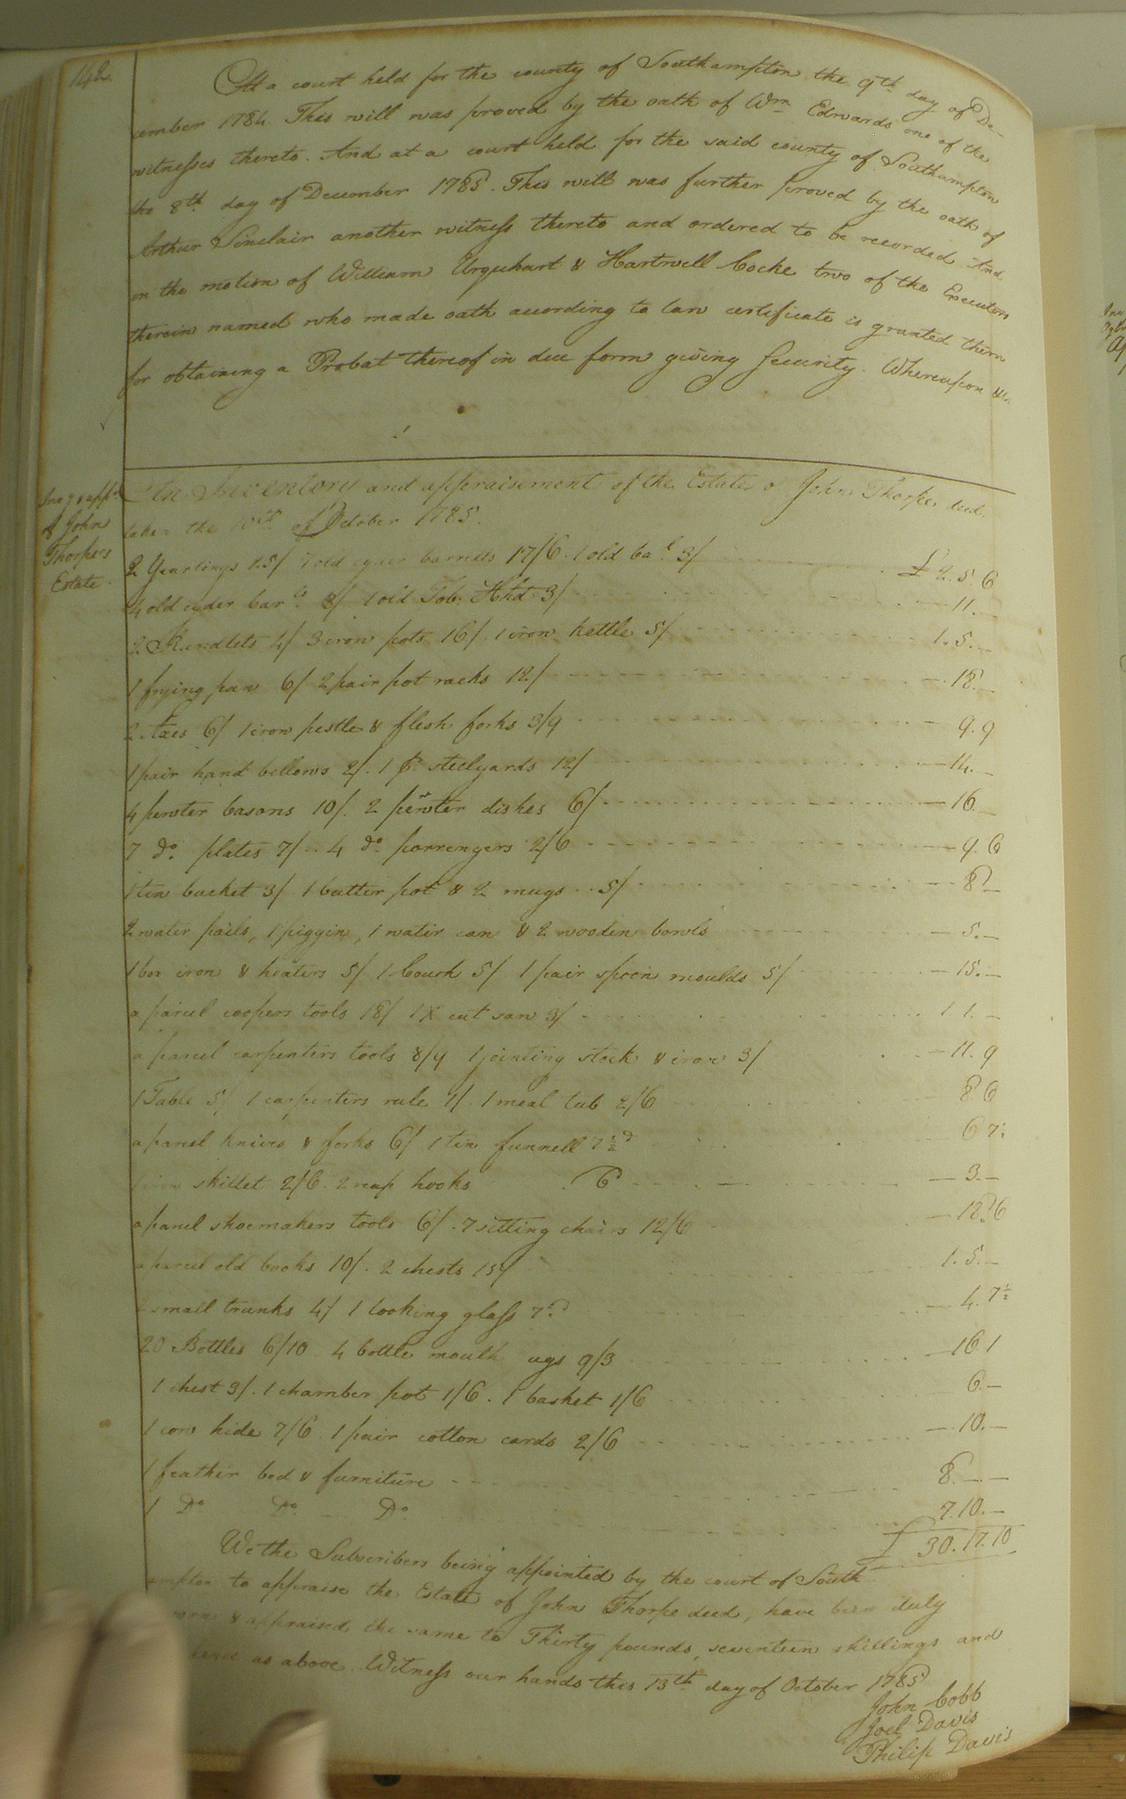 142.
At a court held for the county of Southampton the 9th day of De-
cember 1784. This will was proved by the oath of Wm Edwards one of the
witnesses thereto. And at a court held for the said county of Southampton
the 8th day of December 1785. This will was further proved by the oath of
Arthur Sinclair another witness thereto and ordered to be recorded And
on the motion of William Urquhart & Hartwell Cocke two of the Executors
therein named who made oath according to law certificate is granted them
for obtaining a Probat thereof in due form giving Security. Whereupon &c.
Invy & appt
of John
Thorpes
Estate.
An Inventory and appraisement of the Estate of John Thorpe decd.
taken the of October 1785.
2 Yearlings 25/ 7 old cyder barrells 17/6. 1 old bal 3/ £2.5.6
4 old cyder barls 8/ 1 old Tob. Hhd 3/ 11.–
2 Rundlets 4/ 3 iron pots 16/. 1 iron kettle 5/ 1.5.–
1 frying pan 6/ 2 pair pot racks 12/ 18.–
2 Axes 6/ 1 iron pestle & flesh forks 3/9 9.9
1 pair hand bellows 2/. 1 pr. steelyards 12/ 14.–
4 pewter basons 10/. 2 pewter dishes 6/ 16.–
7 do. plates 7/ 4 do. porrengers 2/6 9.6
1 tin bucket 3/ 1 butter pot & 2 mugs 5/ 8.–
2 water pails, 1 piggin, 1 water can & 2 wooden bowls 5.–
1 box iron & heaters 5/ 1 Couch 5/ 1 pair spoon moulds 5/ 15.–
a parcel coopers tools 18/ 1 X cut saw 3/ 1.1.–
a parcel carpenters tools 8/9 1 jointing stock & iron 3/ 11.9
1 Table 5/ 1 carpenters rule 1/. 1 meal tub 2/6 8 6
a parcel knives & forks 6/ 1 tin funnell 7½d 6 7½
1 iron skillet 2/6. 2 reap hooks 6 3.–
a parcel shoemakers tools 6/. 7 sitting chairs 12/6 18.6
a parcel old books 10/. 2 chests 15/ 1.5.–
small trunks 4/ 1 looking glass 7½d 4.7½
20 Bottles 6/10 4 bottle mouth ugs 9/3 16 1
1 chest 3/. 1 chamber pot 1/6. 1 basket 1/6 6.–
1 cow hide 7/6 1 pair cotton cards 2/6 10.–
1 feather bed & furniture 8.–.–
1 Do Do Do 7.10.–
£ 30.17.10
We the Subscribers being appointed by the court of South
ampton to appraise the Estate of John Thorpe decd, have been duly
sworn & appraised the same to Thirty pounds, seventeen shillings and
as above. Witness our hands this 13th day of October 1785
John Cobb
Joel Davis
Philip Davis